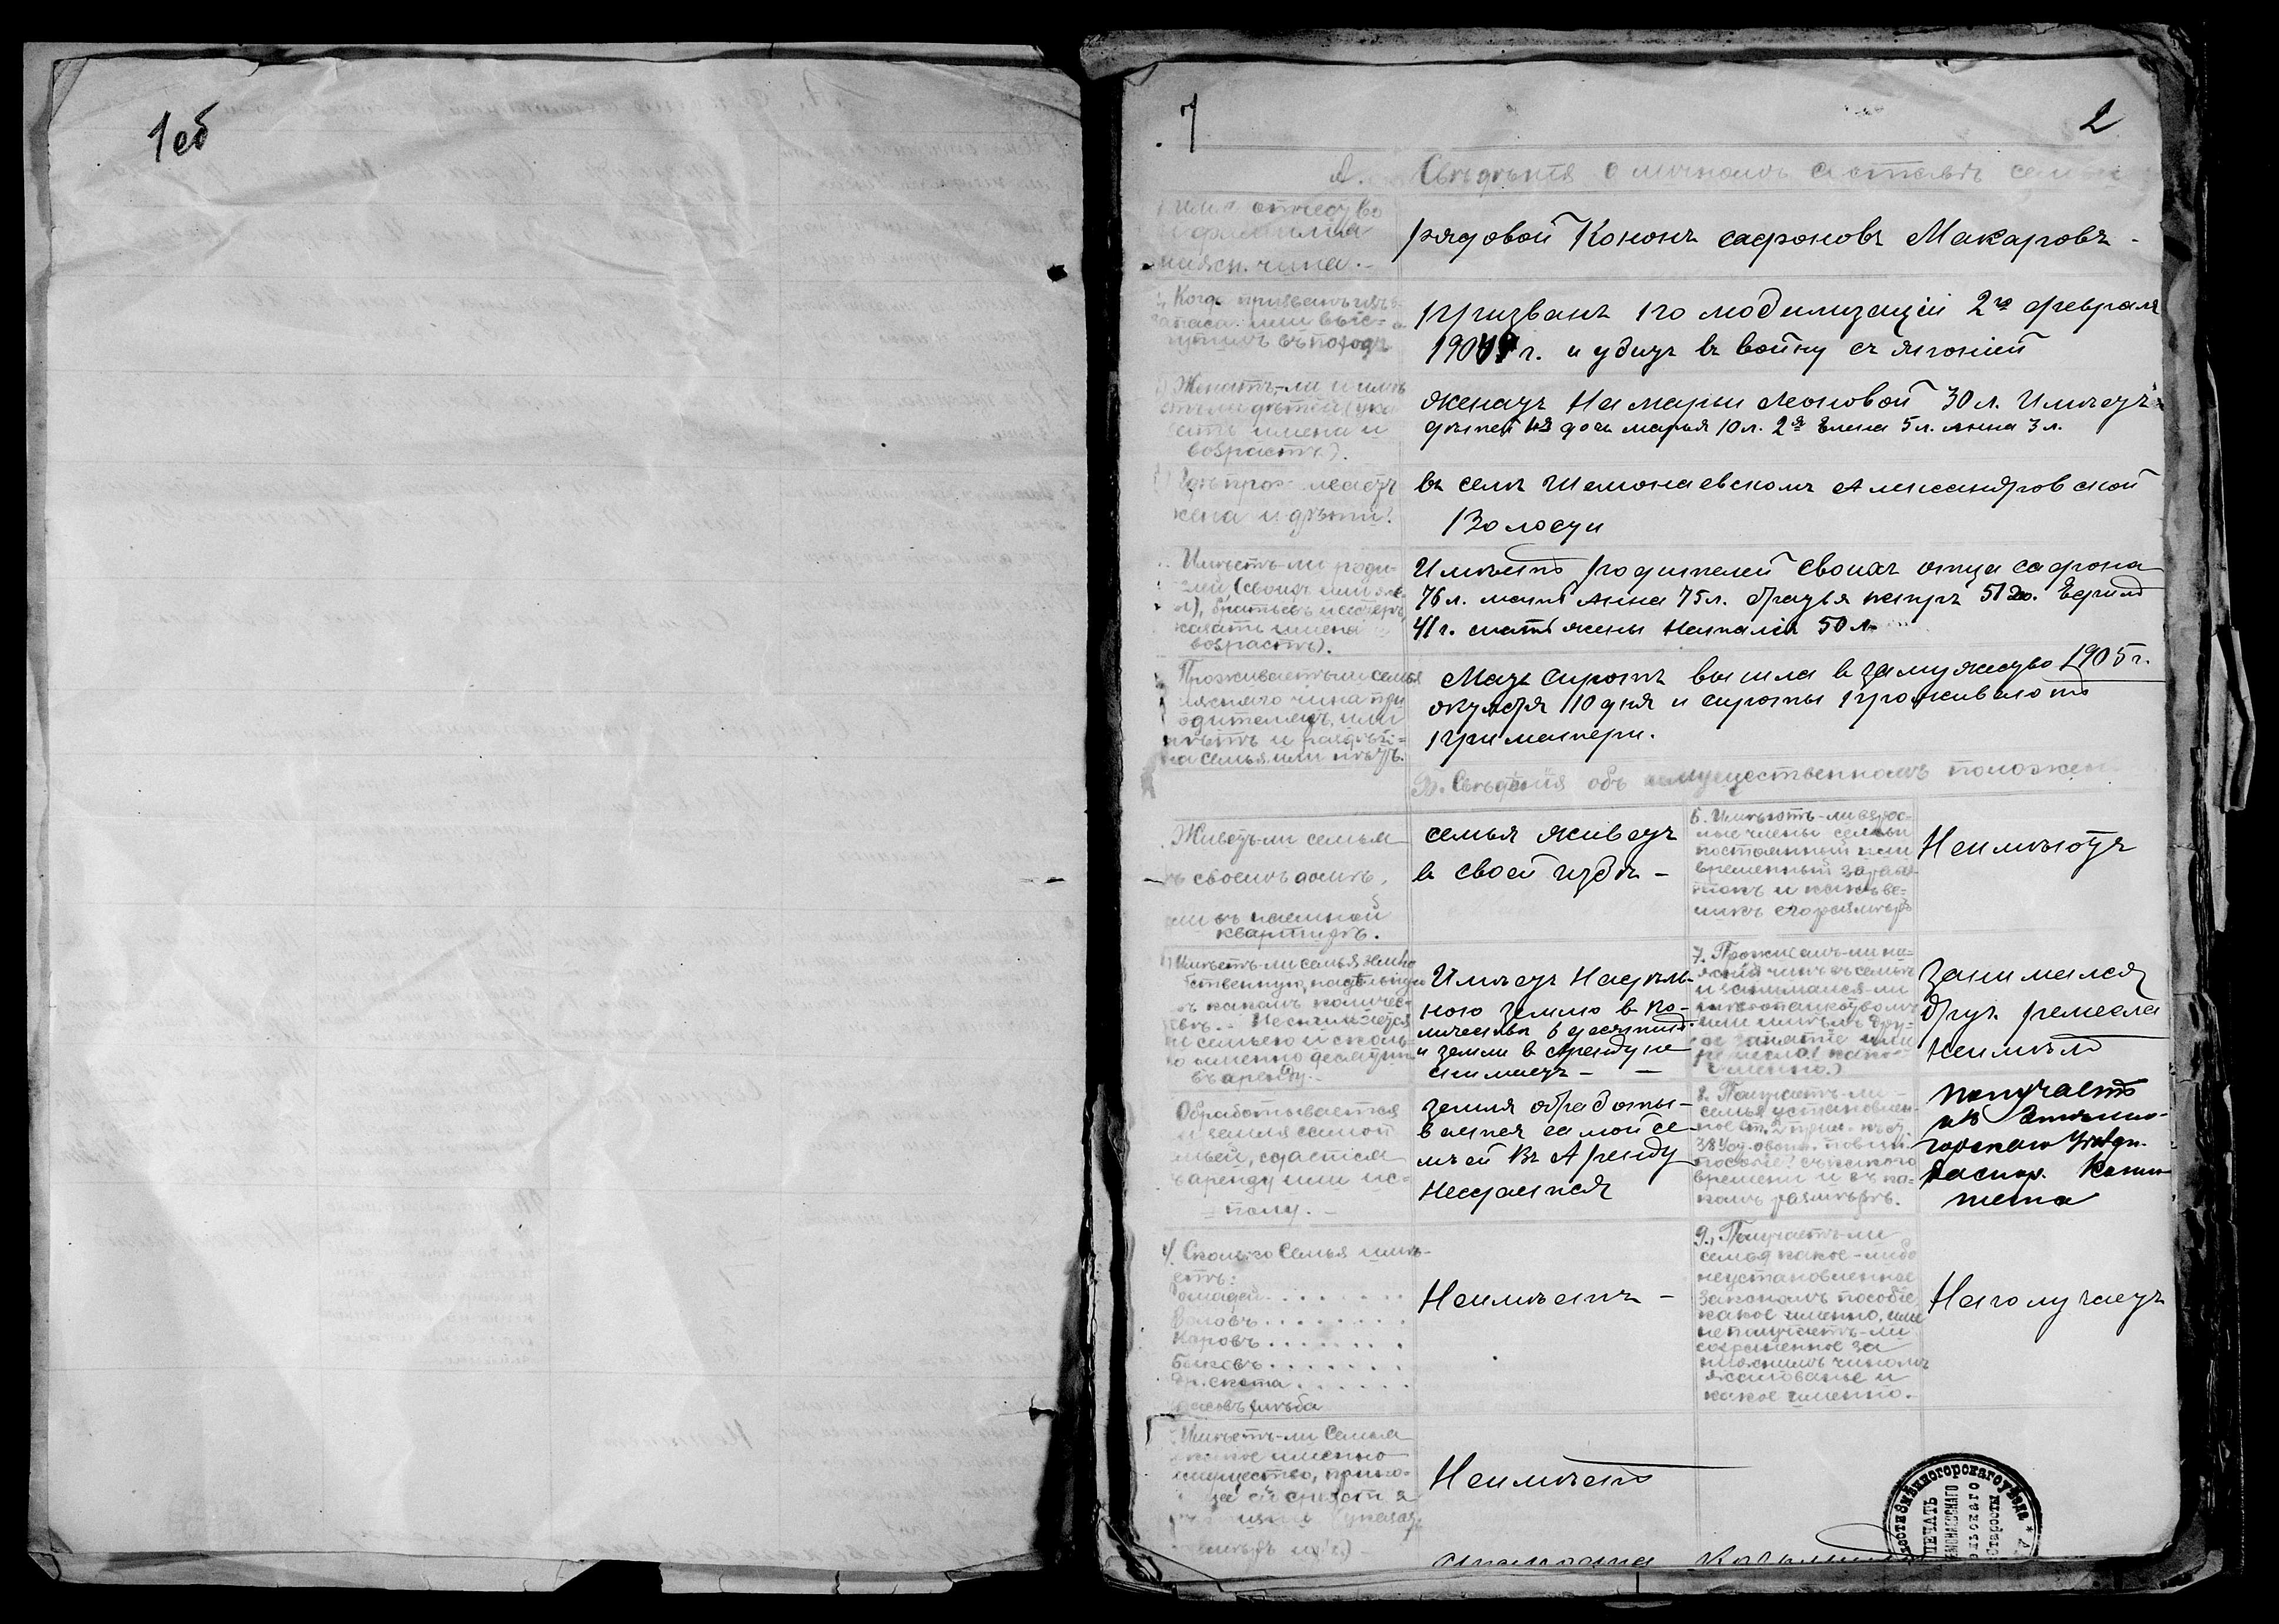 1об
7
2
А. Свѣдѣнія о личномъ составѣ семьи
Имя отчество
и фамилія
нижн. чина.
рядовой Кононъ сафроновъ Макаровъ -
Когда призванъ изъ
запаса или выс-
тупилъ въ походъ
призванъ по мобилизаціи 2го февраля
1904 г. и убитъ въ войну съ японіей
Женатъ-ли и имѣ-
етъ ли дѣтей (ука
зать имена и
возрастъ).
женатъ На марьи Леоновой 30 л. Имѣетъ
дѣтей дочь марья 10 л. 2я Елена 5 л. анна 3 л.
Гдѣ прож
жена и дѣти?
въ селѣ Шемонаевскомъ Александровской
Волости
Имѣетъ-ли роди-
(своихъ или же-
братьевъ и сестеръ,
казать имена
возрастъ).
Имѣетъ родителей своихъ отца сафрона
76 л. мать Анна 75 л. братья петръ 51
41 г. мать жены Наталія 50 л.
Проживаетъ ли семья
нижняго чина при
родителяхъ, или
на семья или нѣтъ.
Мать сиротъ вышла в замужество 1905 г.
октября 10 дня и сироты проживаютъ
при матери.
Б. Свѣдѣнія объ имущественномъ положен
Живетъ-ли семья
въ своемъ домѣ,
или въ наемной
квартирѣ.
семья живетъ
в своей избѣ -
6. Имѣютъ-ли взрос-
лые члены семьи
постоянный или
временный зара-
токъ и какъ ве-
ликъ его размѣръ
Неимѣютъ
Имѣетъ-ли семья землю
бственную, надѣльную
въ какомъ количес-
твѣ. Не снимается
ли семьею и сколь-
ко именно десятин
въ аренду.
Имѣетъ Надѣль-
ною землю в ко-
личества 6 десятинъ
и земли в Аренду не
снимаетъ - -
7. Проживалъ-ли ни-
жній чинъ въ семьѣ
и занимался-ли
Занимался
друг. ремесла
Неимѣлъ
Обрабатывается
ли земля самой
мьей, сдается
въ аренду или ис-
полу. -
земля обрабаты-
вается самой се-
мьей Въ Аренду
Несдается
8. Получаетъ-ли
семья установлен-
ное
38 Уст. о воин. повин.
пособіе? съ какого
времени и въ ка-
комъ размѣрѣ.
получаетъ
Змѣино-
горскаго Уѣздн.
Распор. Коми-
тета
4) Сколько Семья имѣ-
етъ:
лошадей . . . . . . .
Воловъ . . . . . . .
Коровъ . . . . . . .
Быковъ . . . . . . .
др. скота . . . . . .
Неимѣетъ -
9., Получаетъ-ли
семья какое-либо
неустановленное
закономъ пособіе,
какое именно, или
не получаетъ-ли
сохраненное за
нижнимъ чиномъ
жалованье и
какое именно.
Неполучаетъ
Имѣетъ-ли Семья
какое именно
имущество, прино-
Неимѣетъ
ности Змѣиногорскаго уѣзда * А
ПЕЧАТЬ
Старосты